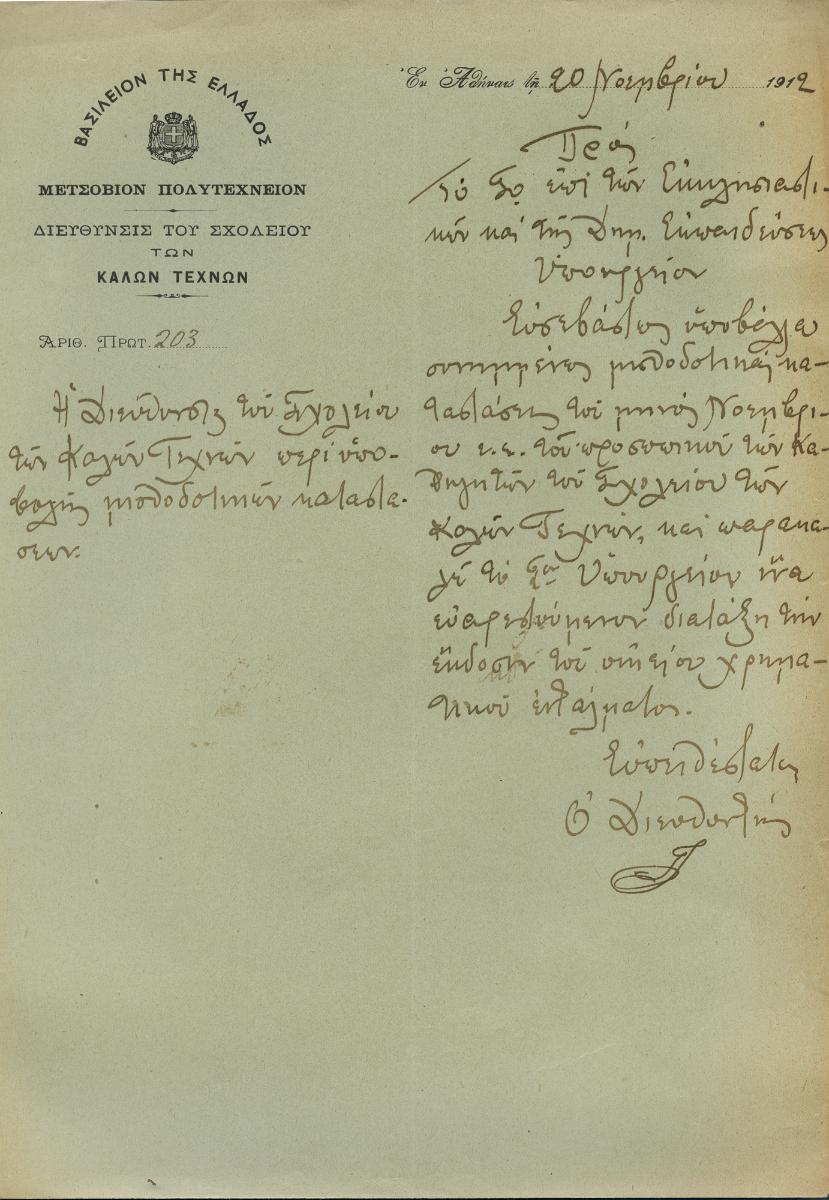 ΒΑΣΙΛΕΙΟΝ ΤΗΣ ΕΛΛΑΔΟΣ
ΜΕΤΣΟΒΙΟΝ ΠΟΛΥΤΕΧΝΕΙΟΝ
ΔΙΕΥΘΥΝΣΙΣ ΤΟΥ ΣΧΟΛΕΙΟΥ
ΤΩΝ
ΚΑΛΩΝ ΤΕΧΝΩΝ
ΑΡΙΘ. ΠΡΩΤ. 203
Ἡ Διεύθυνσις τοῦ Σχολείου
τῶν Καλῶν Τεχνῶν περὶ ὑπο-
βολῆς μισθοδοτικῶν καταστά-
σεων.
Ἐν Ἀθήναις τῇ 20 Νοεμβρίου 1912
Πρὸς
Τὸ Σὸν ἐπὶ τῶν Ἐκκλησιαστι-
κῶν καὶ τῆς Δημ. Ἐκπαιδεύσεως
Ὑπουργεῖον
Εὐσεβάστως ὑποβάλλω
συνημμένως μισθοδοτικὰς κα-
ταστάσεις τοῦ μηνὸς Νοεμβρί-
ου ἐ.ἔ. τοῦ προσωπικοῦ τῶν Κα-
θηγητῶν τοῦ Σχολείου τῶν
Καλῶν Τεχνῶν, καὶ παρακα-
λῶ τὸ Σὸν Ὑπουργεῖον ἵνα
εὐαρεστούμενον διατάξῃ τὴν
ἔκδοσιν τοῦ οἰκείου χρημα-
τικοῦ ἐντάλματος.
Εὐπειθέστατος
Ὁ Διευθυντής